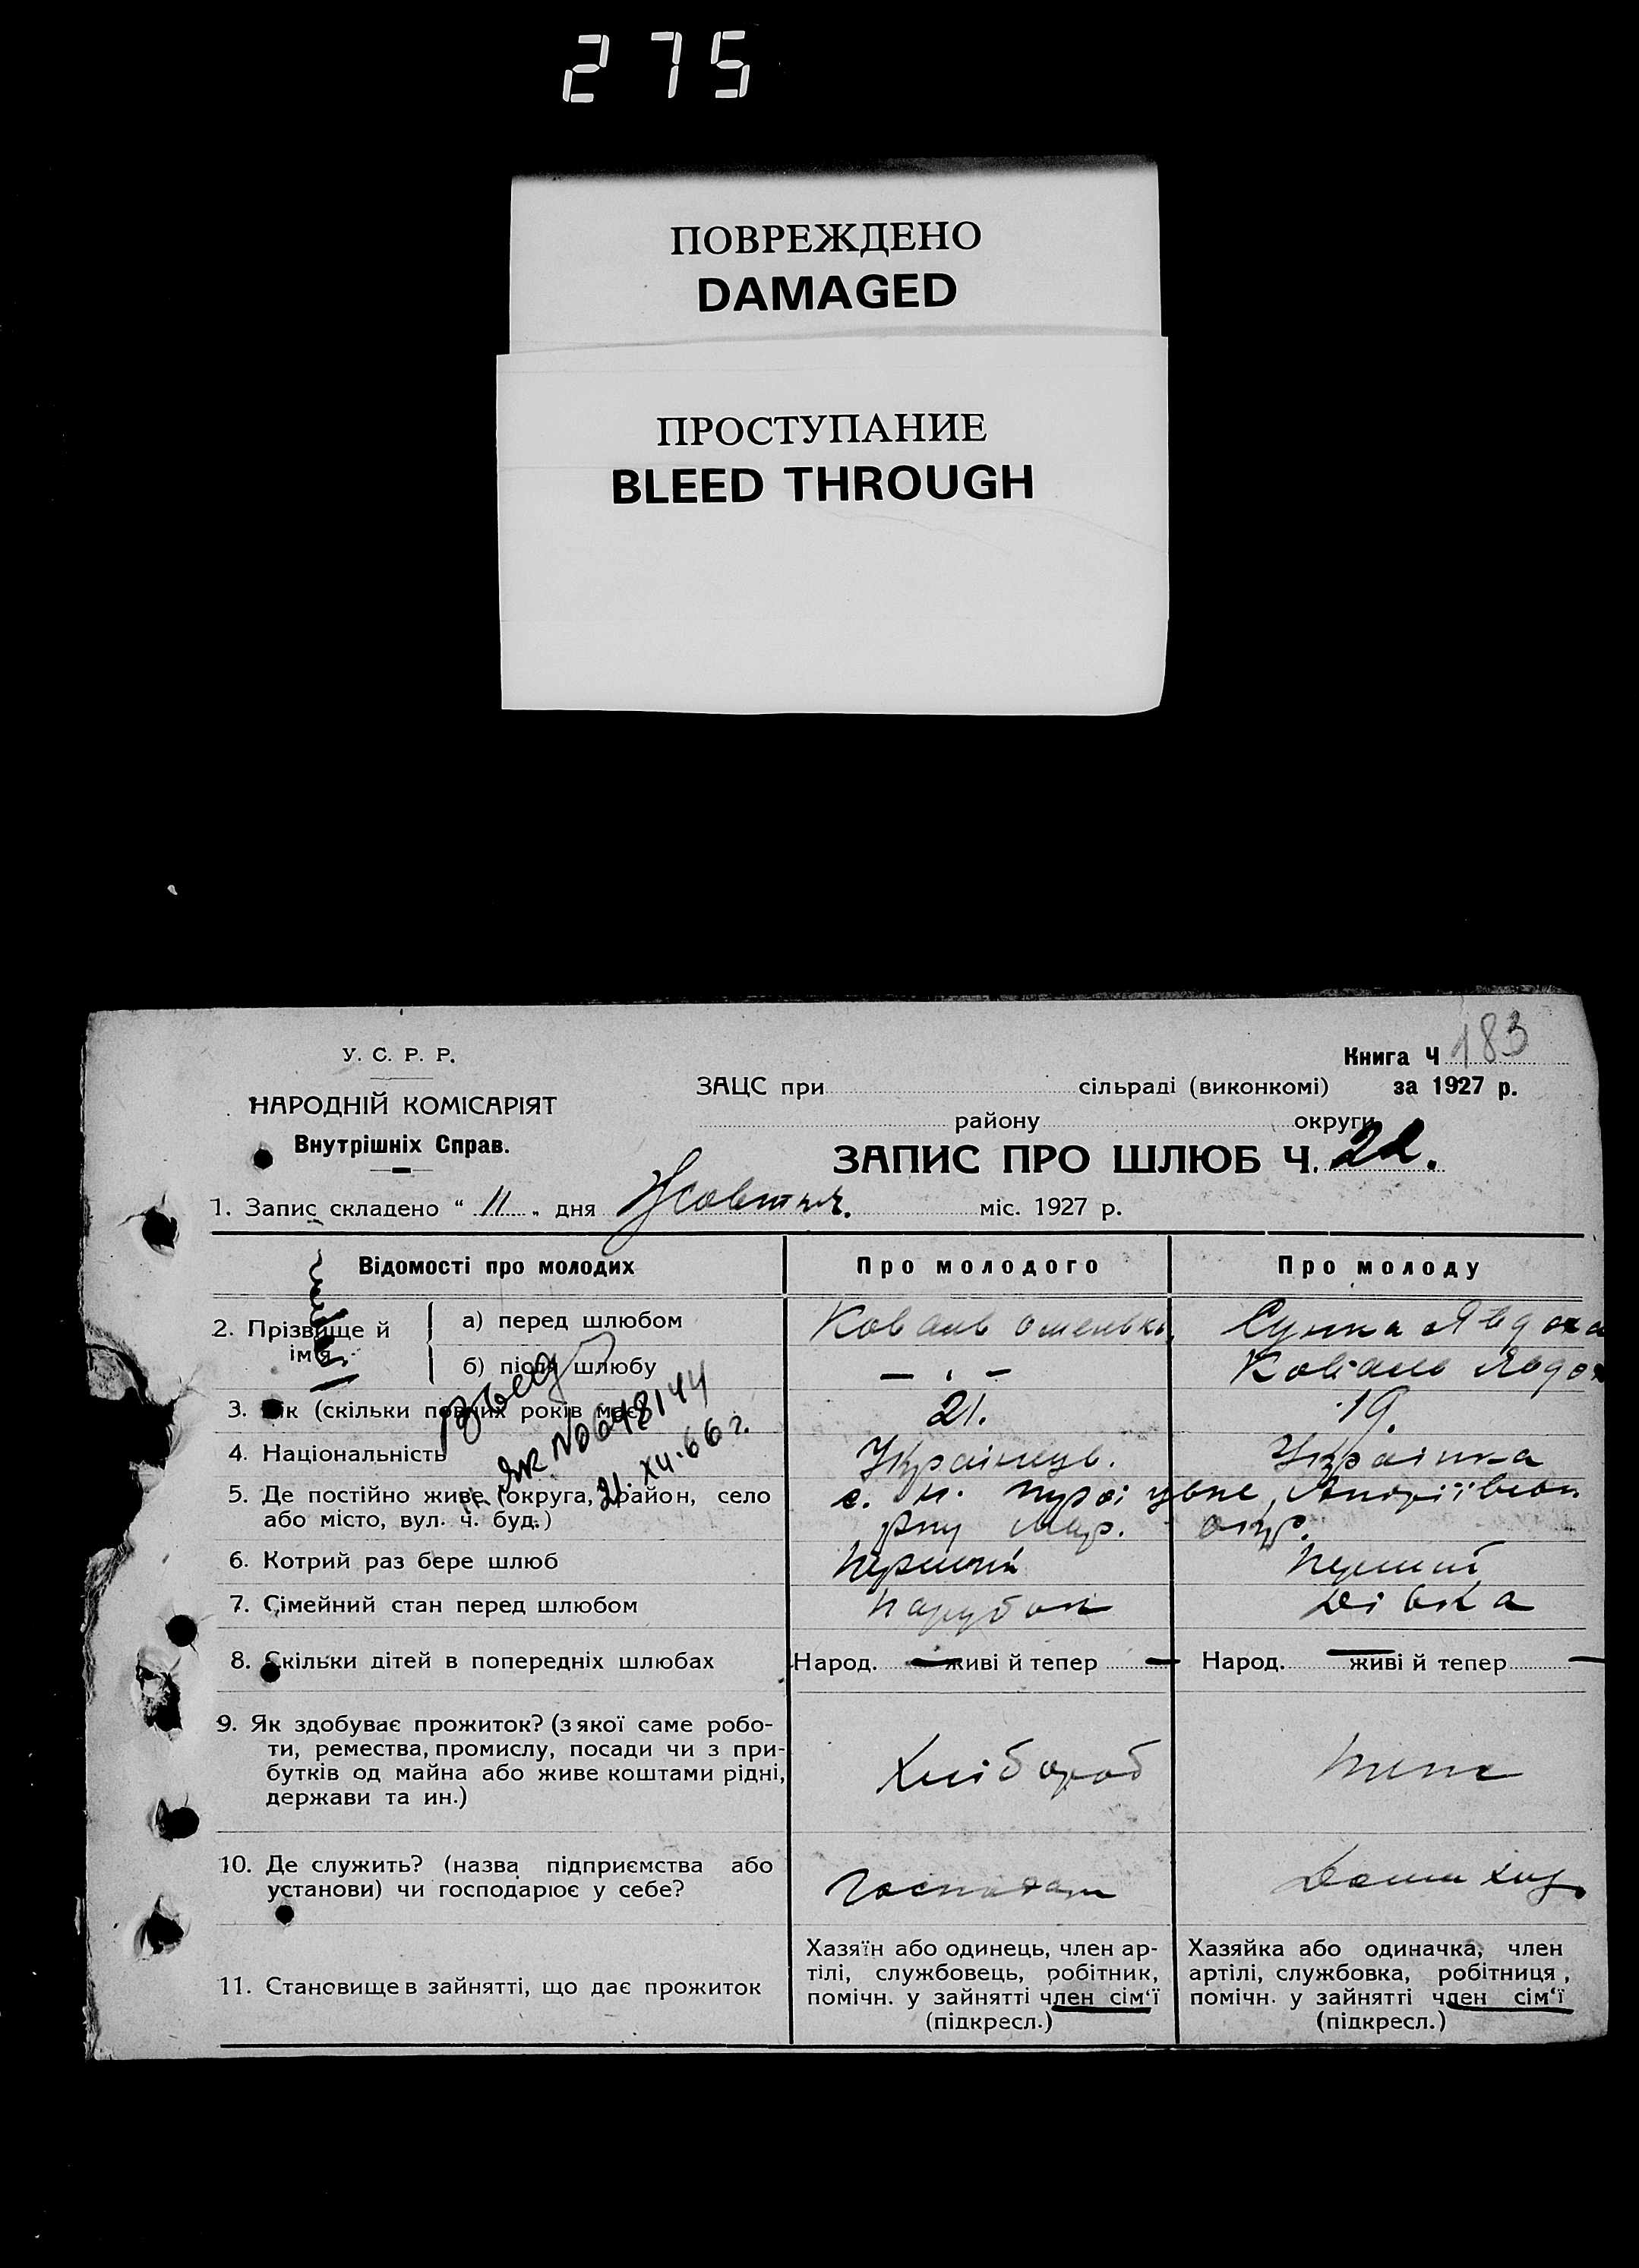 275
ПОВРЕЖДЕНО
DAMAGED
ПРОСТУПАНИЕ
BLEED THROUGH
У. С. Р. Р.
НАРОДНІЙ КОМІСАРІЯТ
Внутрішніх Справ.
Книга Ч 183
ЗАЦС при сільраді (виконкомі) за 1927 р.
району округи
ЗАПИС ПРО ШЛЮБ Ч. 22.
1. Запис складено " 11 " дня Жовтня. міс. 1927 р.
Відомості про молодих
Про молодого
Про молоду
2. Прізвище й ім'я
а) перед шлюбом
Коваль
Явдоха
б) після шлюбу
— . —
Коваль Явдох
3. Вік (скільки повних років має)
21.
19.
№ 0648144
21.XII.66 г.
4. Національність
Українець.
Українка
5. Де постійно живе (округа, район, село
або місто, вул. ч. буд.)
с. Андріївськ
рну Мар. окр.
6. Котрий раз бере шлюб
Перший
Перший
7. Сімейний стан перед шлюбом
Парубок
Дівка
8. Скільки дітей в попередніх шлюбах
Народ. — живі й тепер —
Народ. — живі й тепер —
9. Як здобуває прожиток? (з якої саме робо-
ти, ремества, промислу, посади чи з при-
бутків од майна або живе коштами рідні,
держави та ин.)
Хлібороб
10. Де служить? (назва підприємства або
установи) чи господарює у себе?
11. Становище в зайнятті, що дає прожиток
Хазяїн або одинець, член ар-
тілі, службовець, робітник,
помічн. у зайнятті член сім'ї
(підкресл.)
Хазяйка або одиначка, член
артілі, службовка, робітниця,
помічн. у зайнятті член сім'ї
(підкресл.)